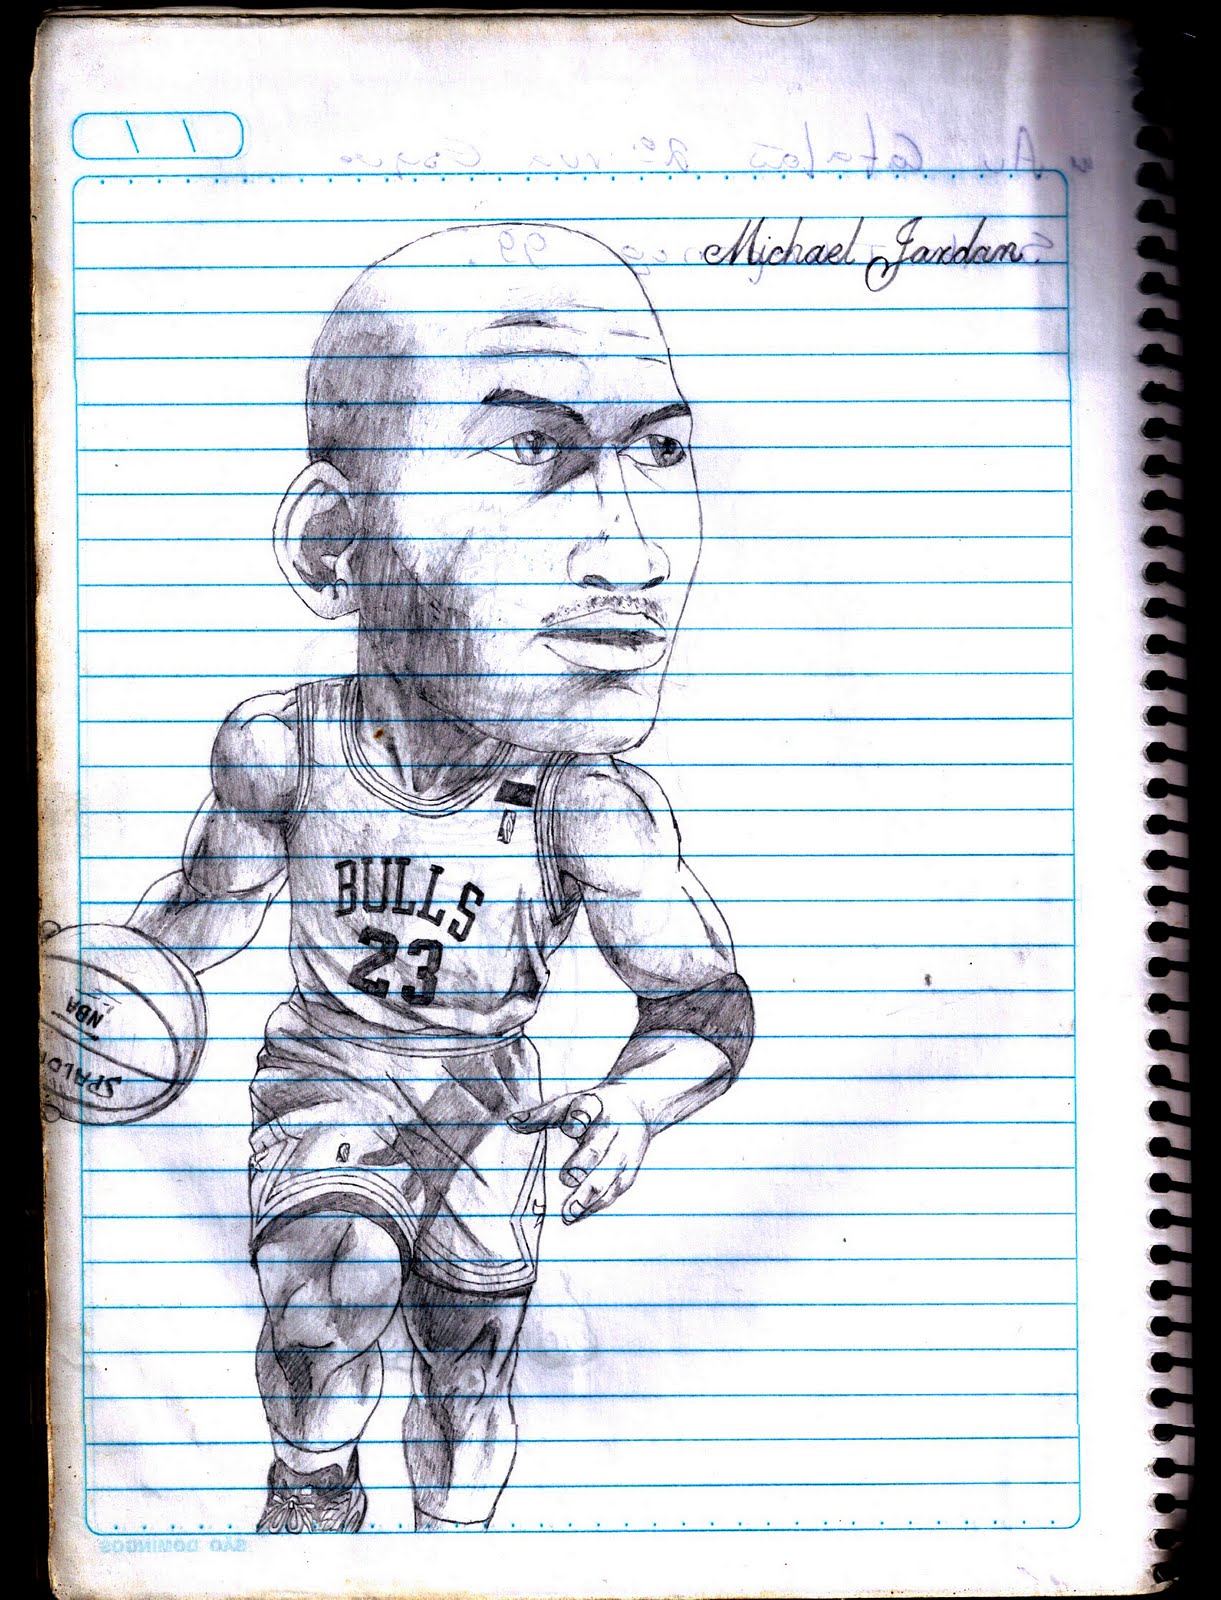 / /
Michael Jardan.
BULLS
23
NBA
SPALD
SÃO DOMINGOS